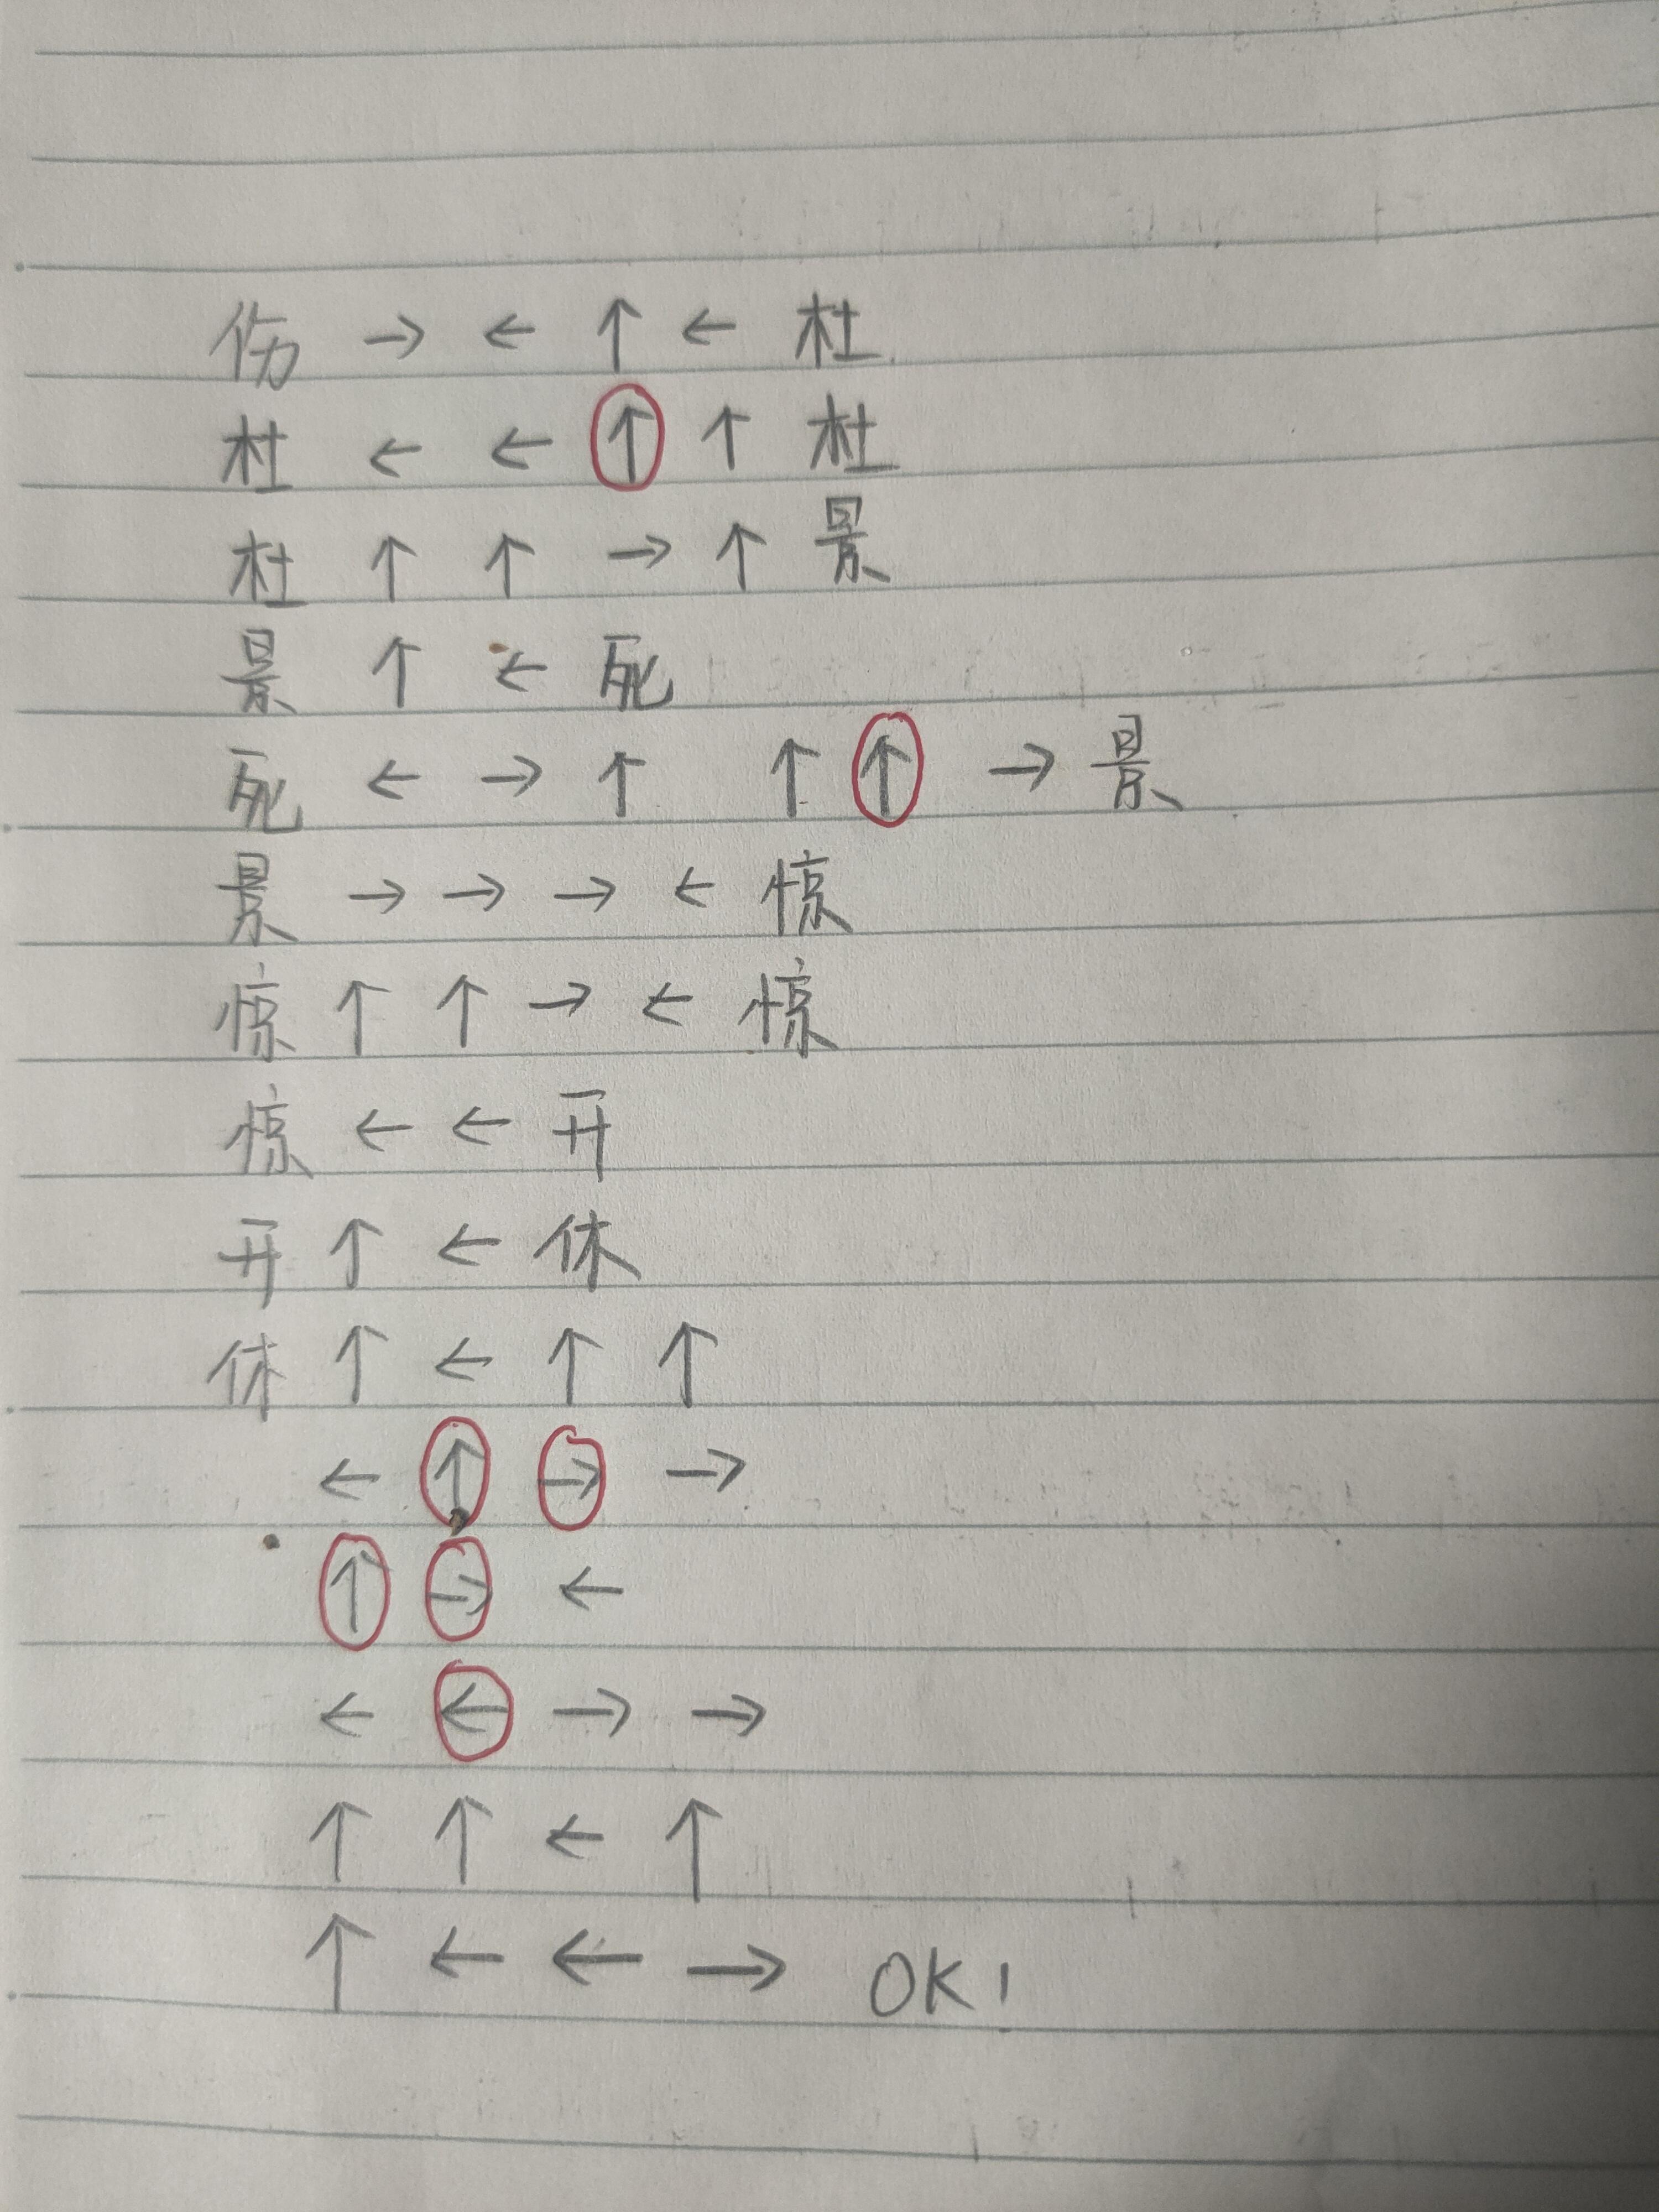 伤 → ← ↑ ← 杜
杜 ← ← ↑ ↑ 杜
杜 ↑ ↑ → ↑ 景
景 ↑ ← 死
死 ← → ↑ ↑ ↑ → 景
景 → → → ← 惊
惊 ↑ ↑ → ← 惊
惊 ← ← 开
开 ↑ ← 休
休 ↑ ← ↑ ↑
← ↑ → →
↑ → ←
← ← → →
↑ ↑ ← ↑
↑ ← ← → OK!